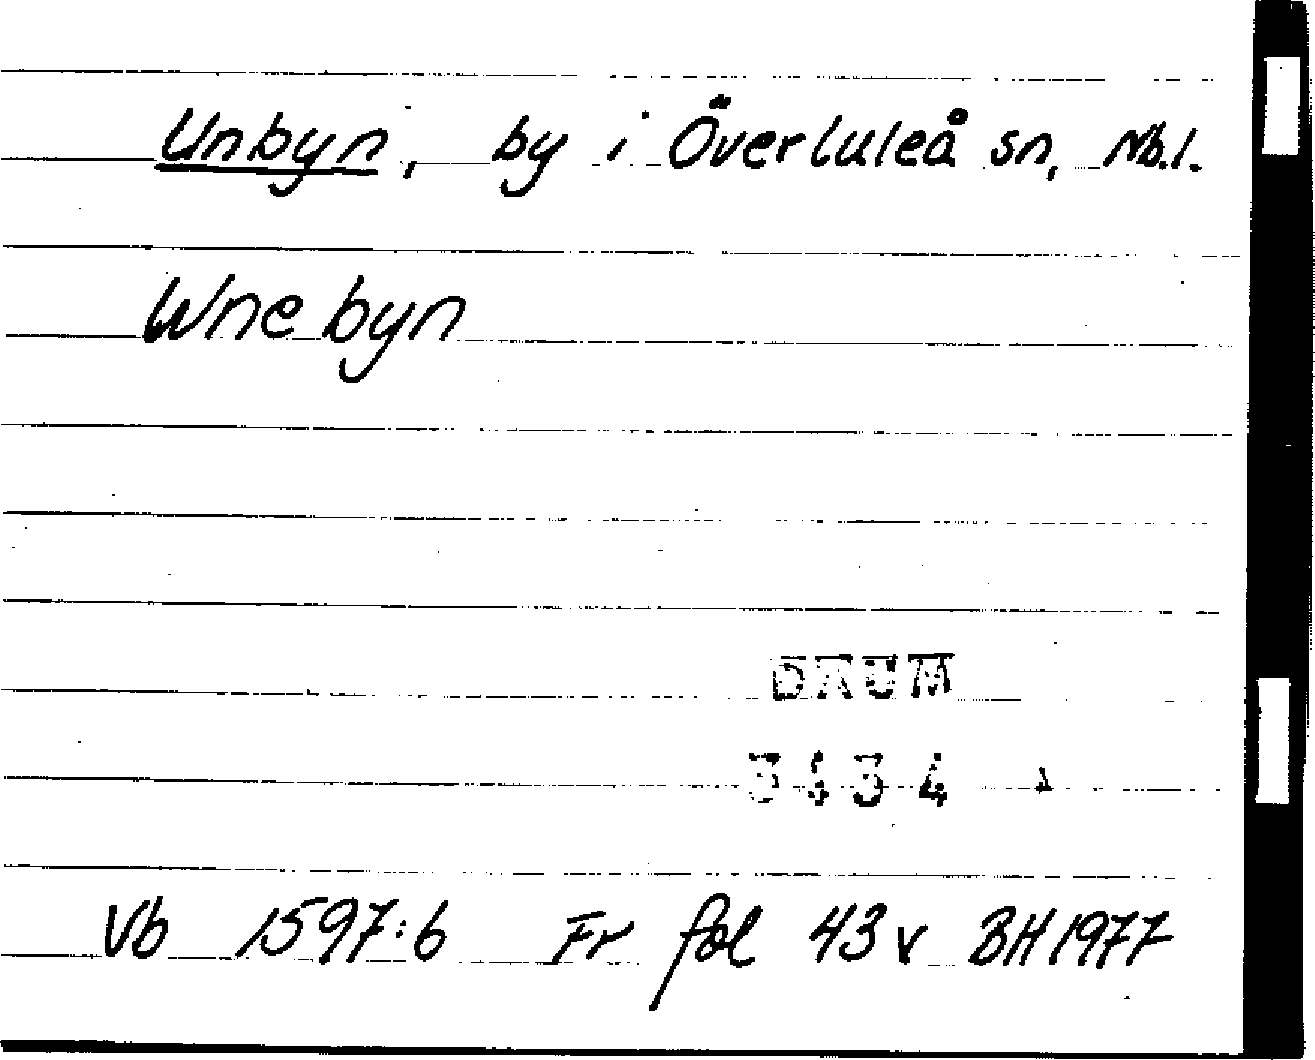 Unbyn, by i Överluleå sn, Nb.l.
Wne byn
DAUM
3434
Vb 1597:6 Fr fol 43 v BH 1977